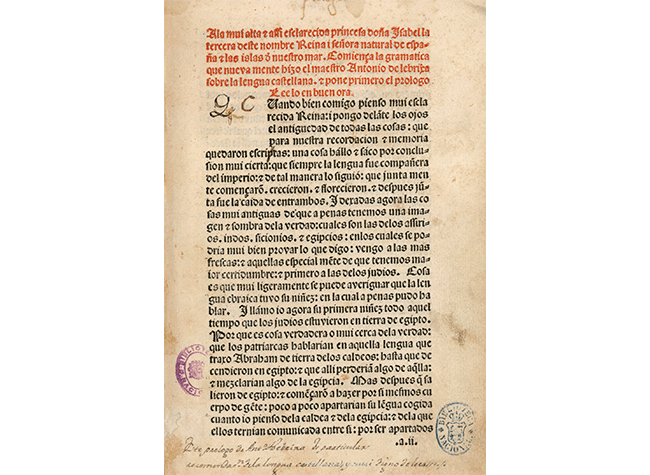 A la mui alta ⁊ assi esclarecida princesa doña Isabel la
tercera deste nombre Reina i señora natural de espa-
ña ⁊ las islas ð nuestro mar. Comiença la gramatica
que nueva mente hizo el maestro Antonio de lebrixa
sobre la lengua castellana. ⁊ pone primero el prologo
Lee lo en buen ora.
C
Uando bien comigo pienso mui escla
recida Reina: i pongo delãte los ojos
el antiguedad de todas las cosas: que
para nuestra recordacion ⁊ memoria
quedaron escriptas: una cosa hállo ⁊ sáco por conclu
sion mui cierta: que siempre la lengua fue compañera
del imperio: ⁊ de tal manera lo siguió: que junta men
te començarõ. crecieron. ⁊ florecieron. ⁊ despues jũ
ta fue la caida de entrambos. I dexadas agora las co
sas mui antiguas de que a penas tenemos una ima-
gen ⁊ sombra dela verdad: cuales son las delos assiri
os. indos. sicionios. ⁊ egipcios: enlos cuales se po-
dria mui bien provar lo que digo: vengo a las mas
frescas: ⁊ aquellas especial mẽte de que tenemos ma-
ior certidumbre: ⁊ primero a las delos judios. Cosa
es que mui ligeramente se puede averiguar que la len
gua ebraica tuvo su niñez: en la cual a penas pudo ha
blar. I llámo io agora su primera niñez todo aquel
tiempo que los judios estuvieron en tierra de egipto.
Por que es cosa verdadera o mui cerca dela verdad:
que los patriarcas hablarian en aquella lengua que
traxo Abraham de tierra delos caldeos: hasta que de
cendieron en egipto: ⁊ que alli perderiã algo de aq̃lla:
⁊ mezclarian algo de la egipcia. Mas despues q̃ sa
lieron de egipto: ⁊ començarõ a hazer por si mesmos cu
erpo de gẽte: poco a poco apartarian su lẽgua cogida
cuanto io pienso dela caldea ⁊ dela egipcia: ⁊ de la que
ellos ternian comunicada entre si: por ser apartados
.a.ii.
Este prologo de Ant. Nebrixa de particular
de la lengua castellana, y